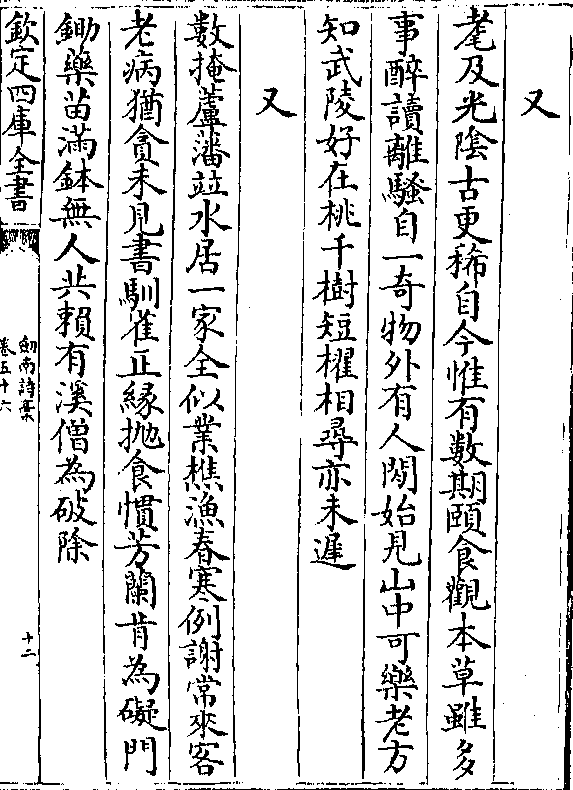 又
耄及光陰古更稀自今惟有數期頤食觀本草雖多
事醉讀離騷自一奇物外有人閱始見山中可樂老方
知武陵好在桃千樹短櫂相尋亦未遲
又
數掩蘆藩竝水居一家全似業樵漁春寒例謝常來客
老病猶貪未見書馴雀正緣抛食慣芳蘭肯為礙門
鋤藥苗滿鉢無人共賴有溪僧為破除
欽定四庫全書
劍南詩藁
卷五十六
十二